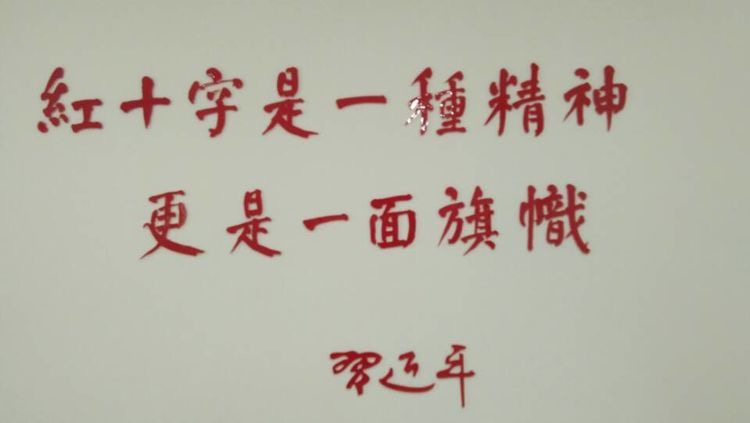 紅十字是一種精神
更是一面旗幟
習近平